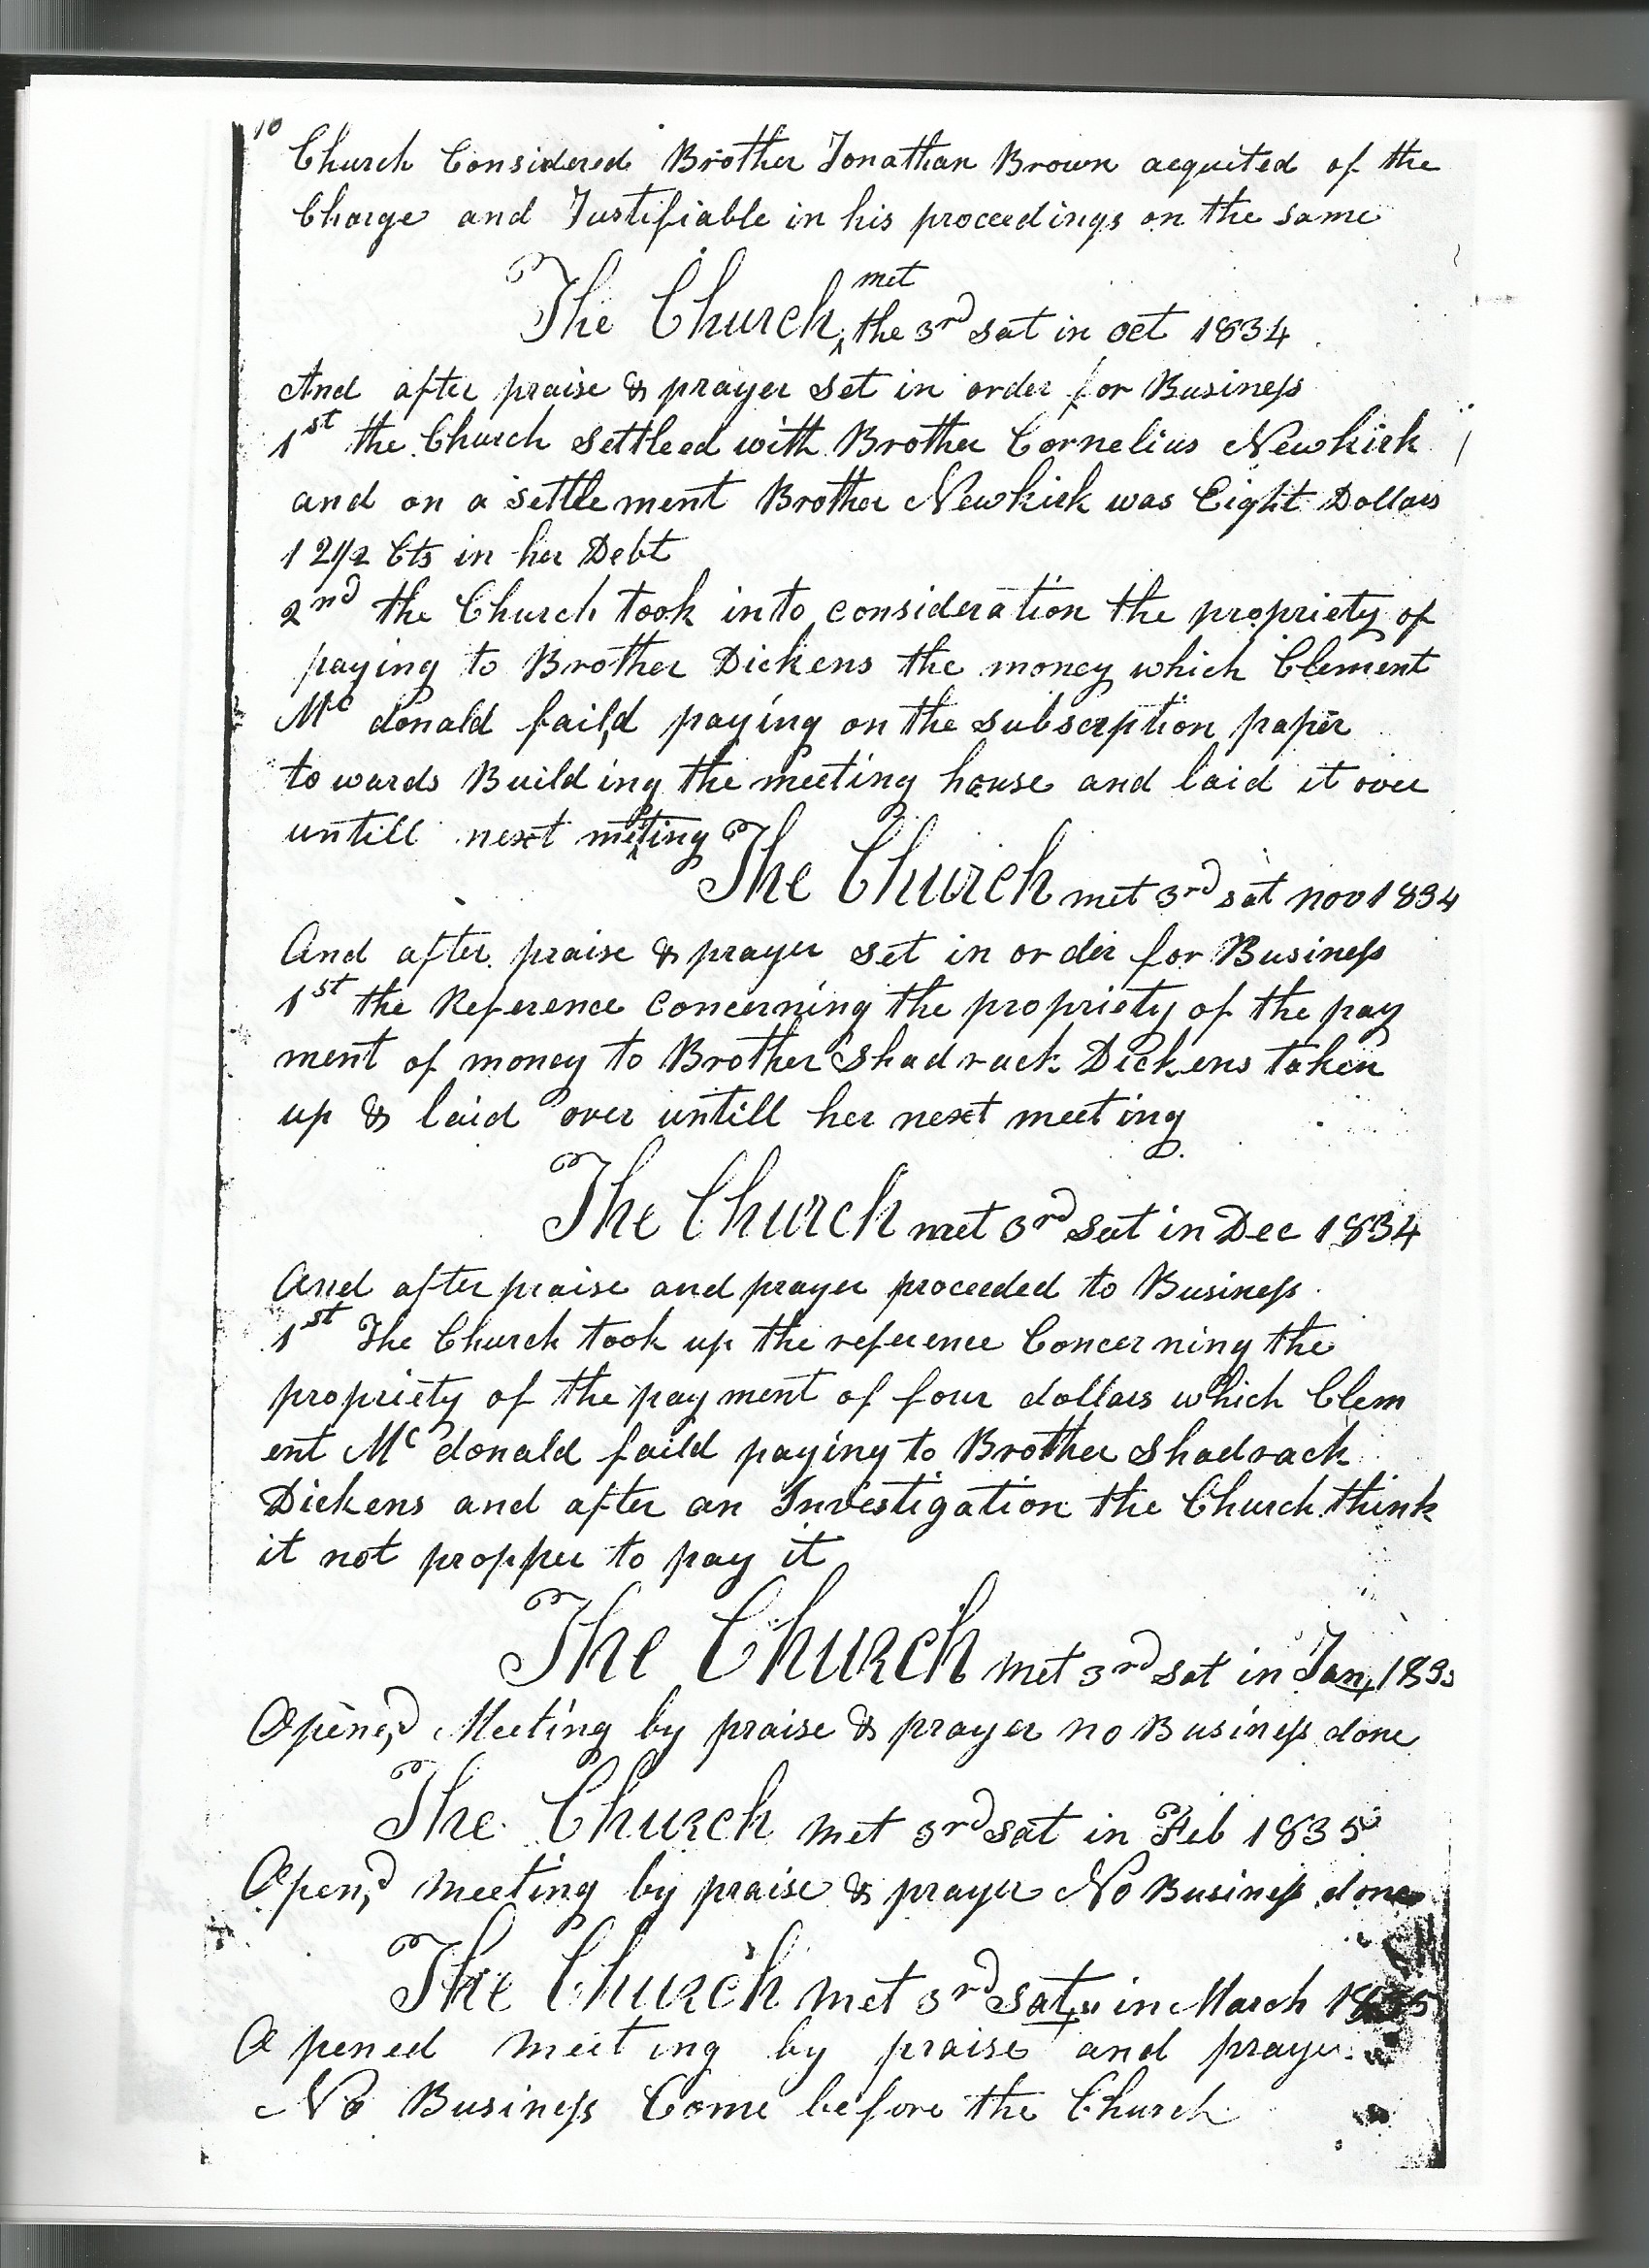 10
Church Considered Brother Jonathan Brown acquited of the
Charge and Justifiable in his proceedings on the same
The Church met the 3rd sat in oct 1834
And after praise & prayer set in order for Business
1st the Church settleed with Brother Cornelius Newkirk
and on a settlement Brother Newkirk was Eight Dollars
12 1/2 Cts in her Debt
2nd the Church took into consideration the propriety of
paying to Brother Dickens the money which Clement
Mc donald fail,d paying on the subscrption paper
to wards Build ing the meeting house and laid it over
untill next meeting
The Church met 3rd sat nov 1834
And after praise & prayer set in order for Business
1st the Reference concerning the propriety of the pay
ment of money to Brother Shadrack Dickens taken
up & laid over untill her next meeting
The Church met 3rd sat in Dec 1834
And after praise and prayer proceeded to Business
1st The Church took up the reference Concerning the
propriety of the payment of four dollars which Clem
ent Mc donald faild paying to Brother Shadrack
Dickens and after an Investigation the Church think
it not propper to pay it
The Church met 3rd sat in Jan, 1835
Opene,d Meeting by praise & prayer no Business done
The Church met 3rd sat in Feb 1835
Open,d meeting by praise & prayer No Business done
The Church met 3rd sat, in March 1835
Opened meeting by praise and prayer
No Business Come before the Church